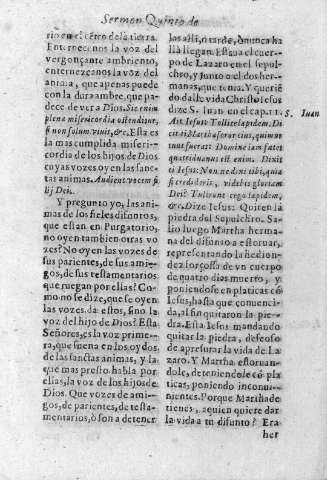 Sermon Quinto de
rio en el cẽtro de la tierra.
Enternecenos la voz del
vergonçante ambriento,
enternezcanos la voz del
anima, que apenas puede
con la dura ambre, que pa-
dece de ver a Dios. Sic enim
plena misericordia ostenditur,
si non solum viuis, &c. Esta es
la mas cumplida miseri-
cordia de los hijos de Dios
cuyas vozes oyen las sanc-
tas animas. Audient vocem fi
lij Dei.
Y pregunto yo, las ani-
mas de los fieles difuntos,
que estan en Purgatorio,
no oyen tambien otras vo
zes? No oyen las vozes de
sus parientes, de sus ami-
gos, de sus testamentarios
que ruegan por ellas? Co-
mo no se dize, que se oyen
las vozes da estos, sino la
voz del hijo de Dios? Esta
Señores, es la voz prime-
ra, que suena en los oydos
de las sanctas animas, y la
que mas presto habla por
ellas, la voz de los hijos de
Dios. Que vozes de ami-
gos, de parientes, de testa-
mentarios, ò son a detener
las alli, o tarde, ò nunca ha
llà llegan. Estaua el cuer-
po de Lazaro en el sepul-
chro, y junto a el dos her-
manas, que tenia. Y queriẽ
do dalle vida Christo Iesus
dize S. Iuan en el cap. 11.
Ait Iesus: Tollite lapidem. Di
cit ei Martha soror eius, qui mor
tuus fuerat: Domine iam fœtet
quatriduanus est enim. Dixit
ei Iesus: Non ne dixi tibi, quia
si credideris, videbis gloriam
Dei? Tulerunt ergo lapidem,
&c. Dize Iesus: Quiten la
piedra del Sepulchro. Sa-
lio luego Martha herma-
na del difunto a estoruar,
representando la hedion-
dez torçosa de vn cuerpo
de quatro dias muerto, y
poniendose en platicas cõ
Iesus, hasta que conuenci-
da, al fin quitaron la pie-
dra. Esta Iesus mandando
quitar la piedra, desseoso
de apresurar la vida de La
zaro. Y Martha estoruan-
dole, deteniendole cõ pla
ticas, poniendo inconui-
nientes. Porque Martha de
tienes, a quien quiere dar
la vida a tu difunto? Era
her
S. Iuan